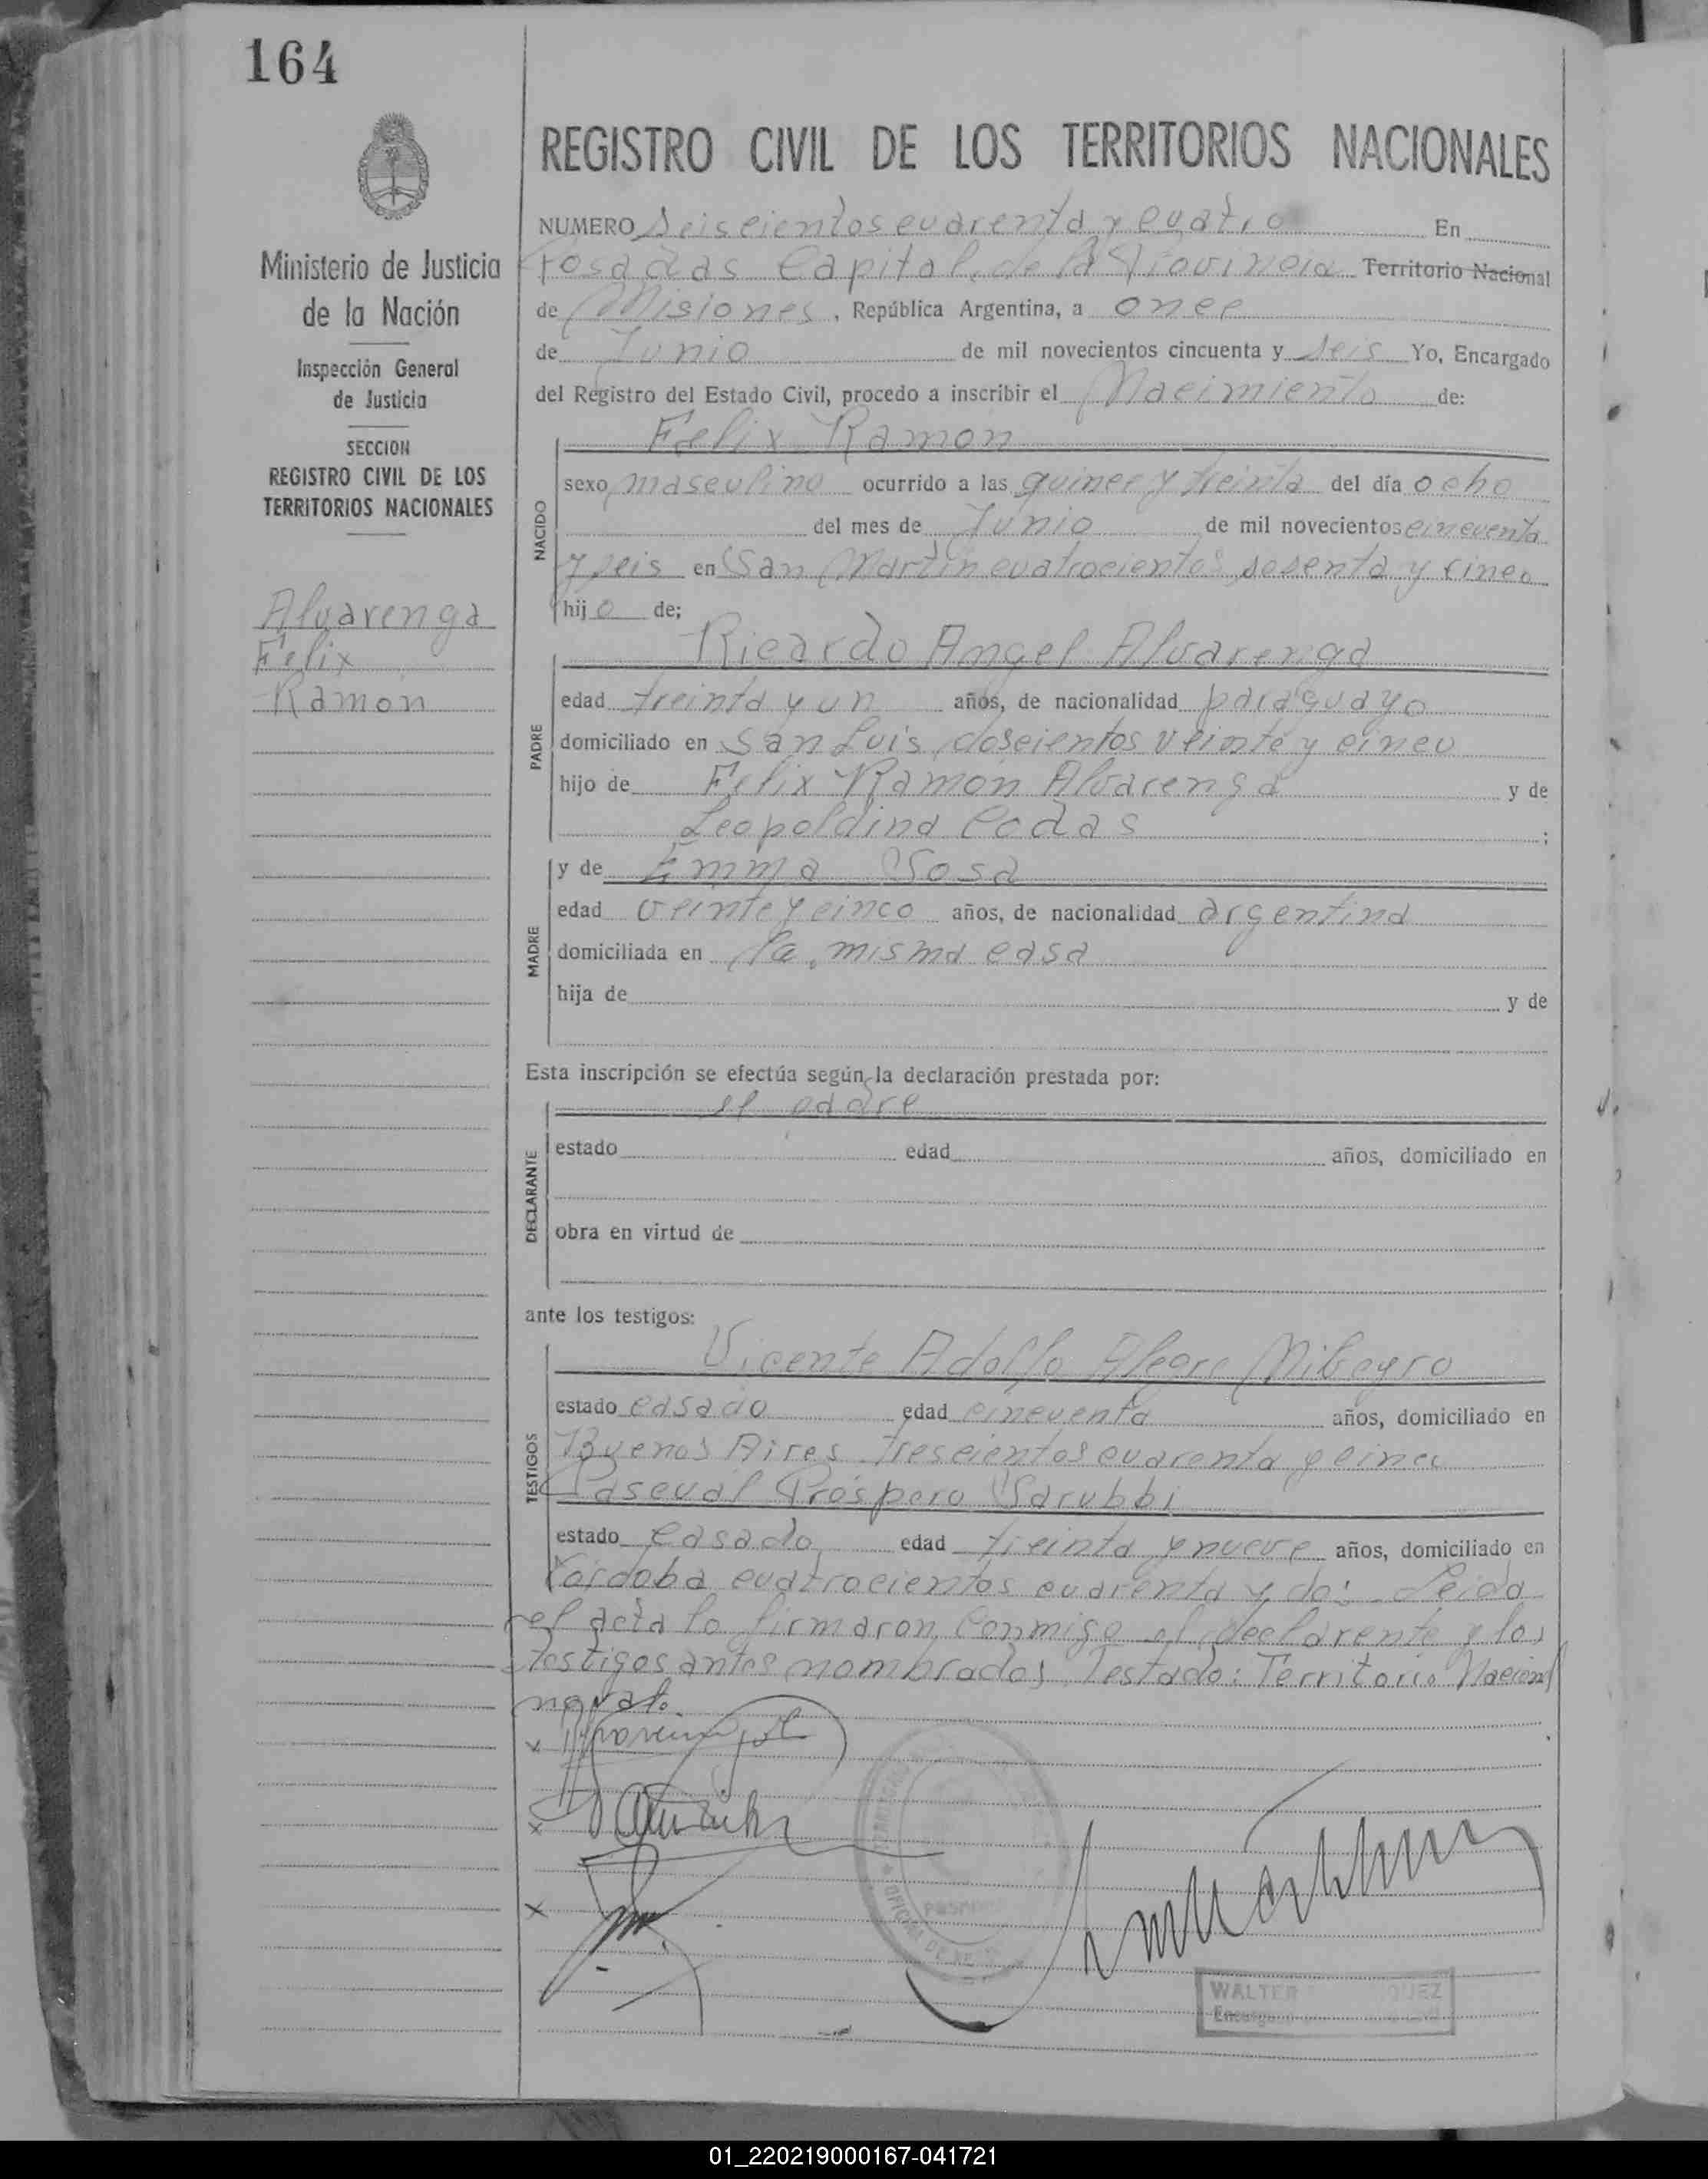 164
REGISTRO CIVIL DE LOS TERRITORIOS NACIONALES
Ministerio de Justicia
de la Nación
Inspección General
de Justicia
SECCION
REGISTRO CIVIL DE LOS
TERRITORIOS NACIONALES
Alvarenga
Felix
Ramon
NUMERO Seiscientos cuarenta y cuatro En
Posadas Capital de la Provincia Territorio Nacional
de Misiones, República Argentina, a once
de Junio de mil novecientos cincuenta y seis Yo, Encargado
del Registro del Estado Civil, procedo a inscribir el Nacimiento de:
NACIDO
Felix Ramon
sexo masculino ocurrido a las quince y treinta del día ocho
del mes de Junio de mil novecientos cincuenta
y seis en San Martin cuatrocientos sesenta y cinco
hijo de;
PADRE
Ricardo Angel Alvarenga
edad treinta y un años, de nacionalidad paraguayo
domiciliado en San Luis doscientos veinte y cinco
hijo de Felix Ramon Alvarenga y de
Leopoldina Codas ;
MADRE
y de Emma Sosa
edad veinte y cinco años, de nacionalidad argentina
domiciliada en la misma casa
hija de y de
Esta inscripción se efectúa según la declaración prestada por:
DECLARANTE
el padre
estado edad años, domiciliado en
obra en virtud de
ante los testigos:
TESTIGOS
Vicente Adolfo Alegre
estado casado edad cincuenta años, domiciliado en
Buenos Aires trescientos cuarenta y cinco
Pascual Próspero Sarubbi
estado casado edad treinta y nueve años, domiciliado en
Córdoba cuatrocientos cuarenta y dos. Leida
el acta lo firmaron conmigo el declarente y los
testigos antes nombrados Testado: Territorio Nacional
WALTER
01_220219000167-041721